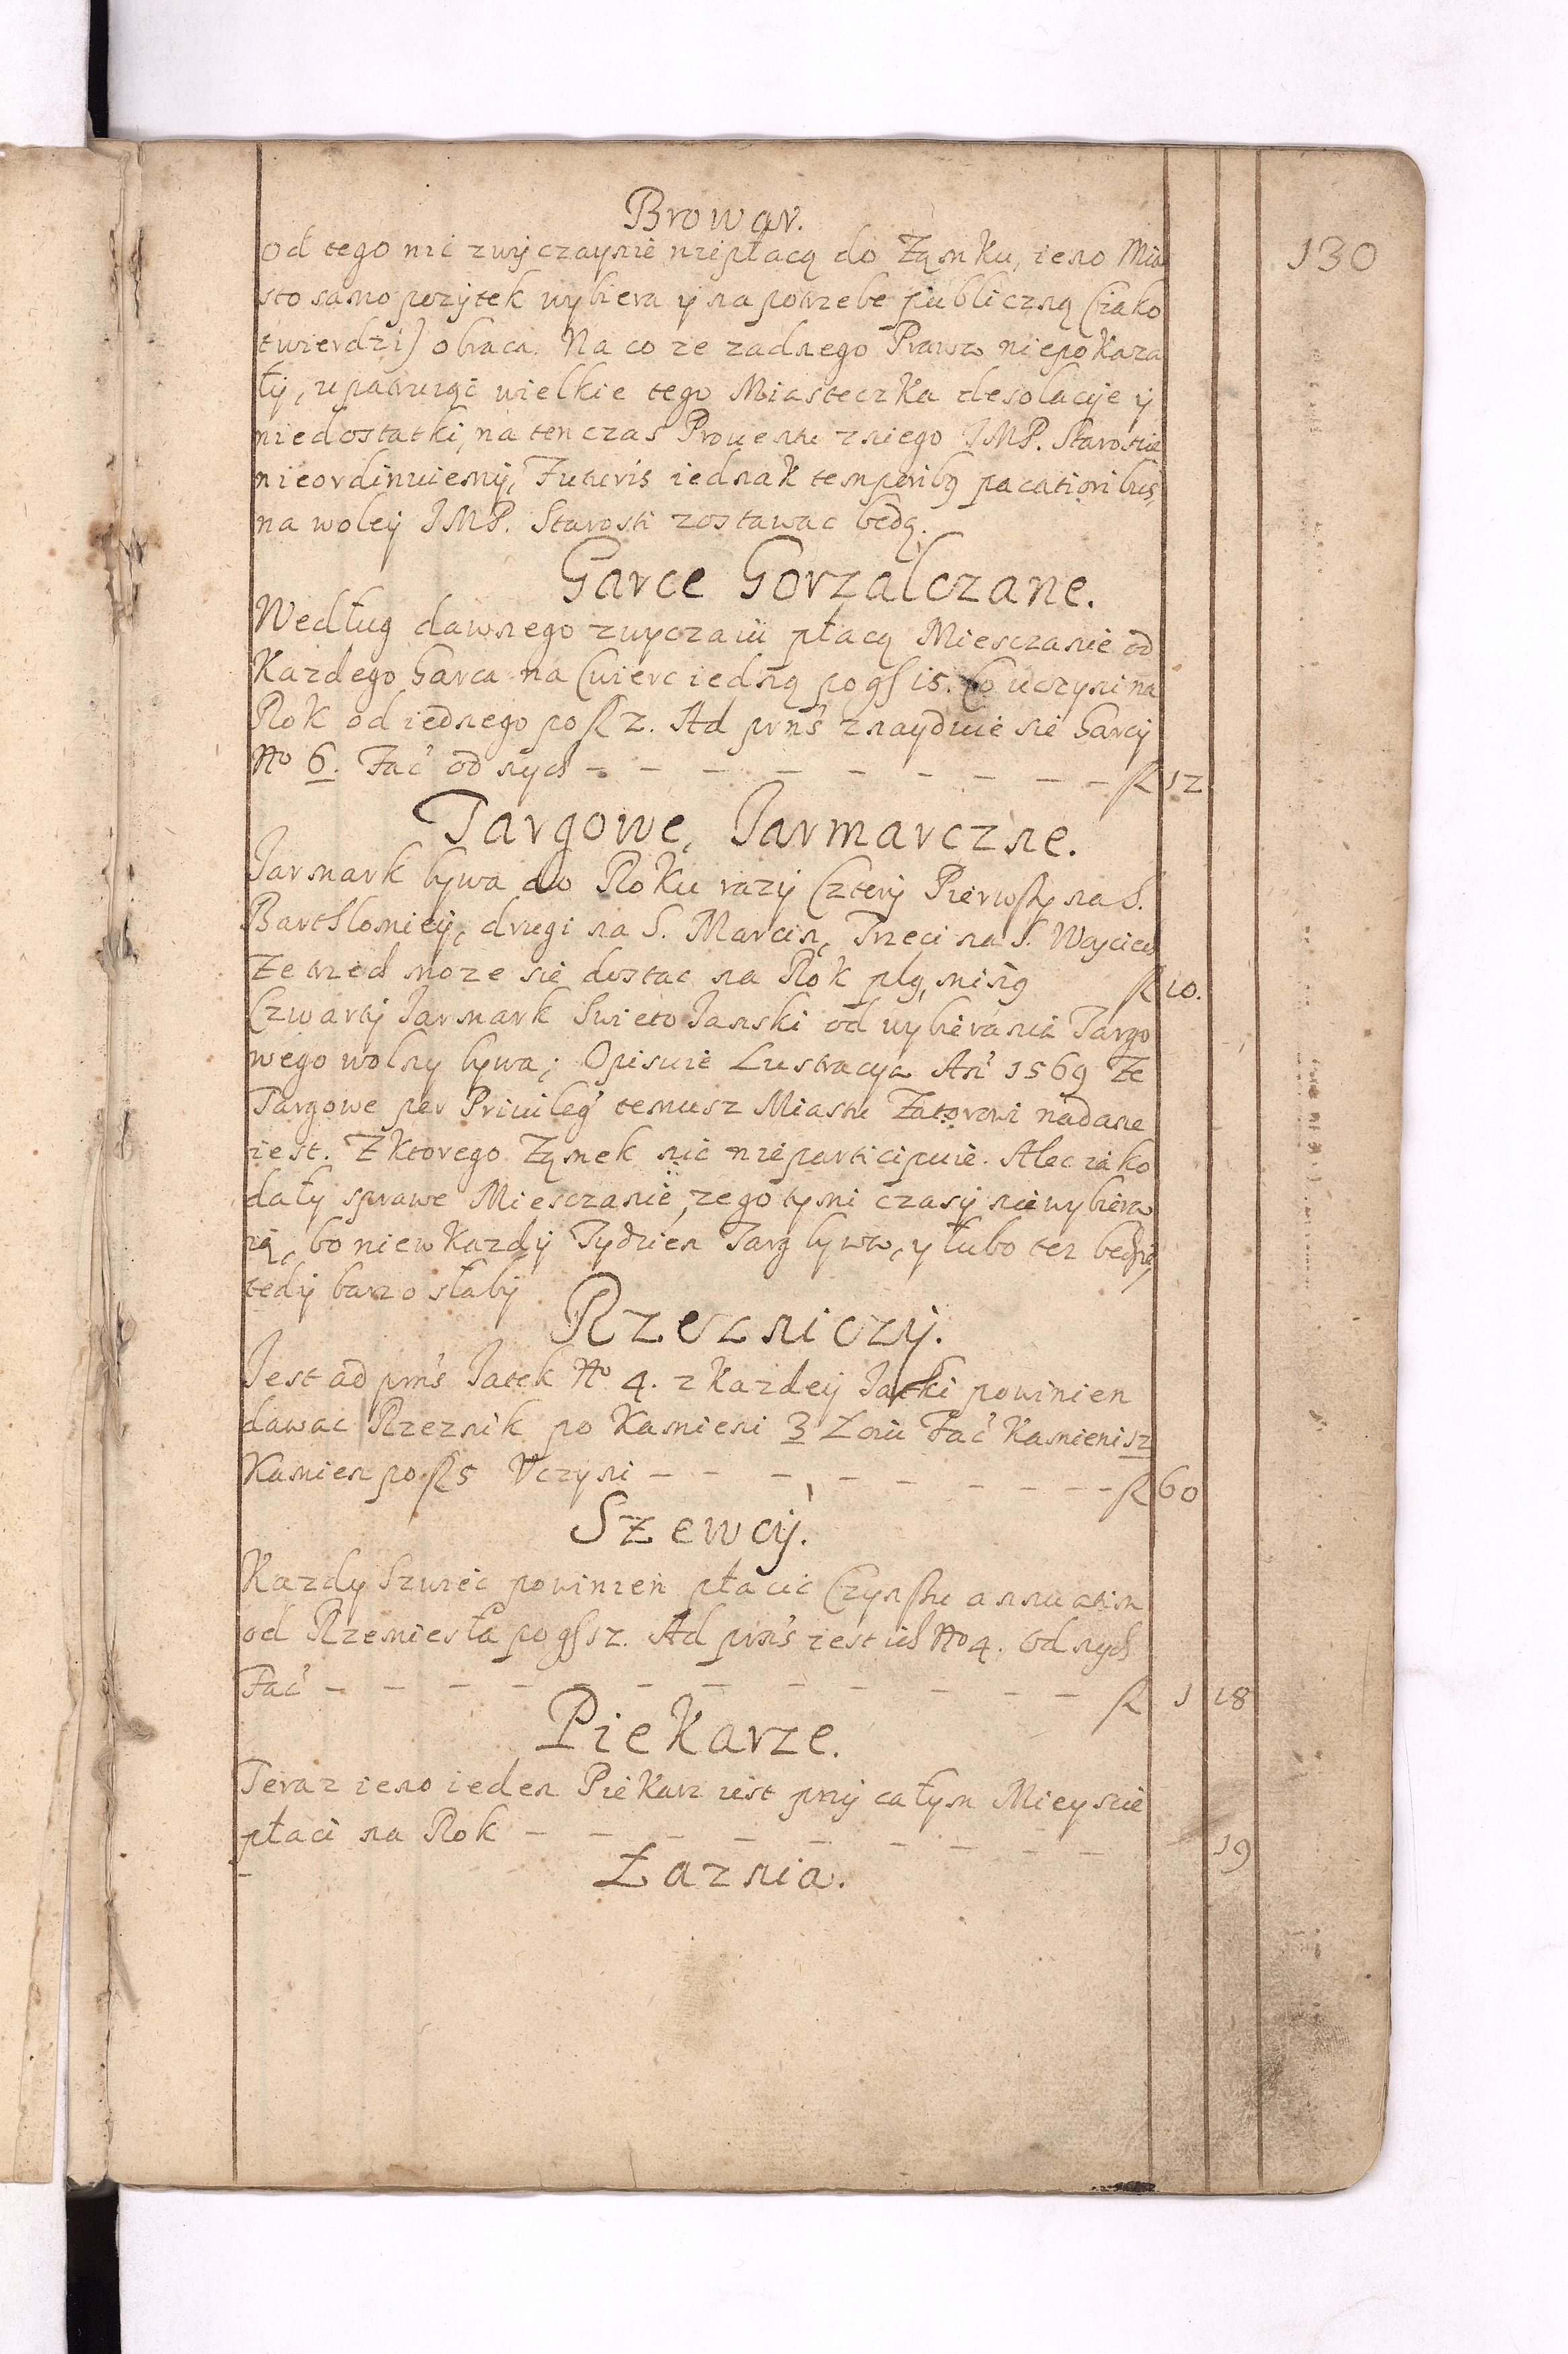 Browar.
130
Od tego nic zwyczaynie nie płacą do Ządmku, ieno Mia
sto samo pozytek wybiera y na potrzebe publiczną (iako
twierdzi) obraca. Na co ze zadnego Prawa niepokaza
ły, upatruiąc wielkie tego Miasteczka desolacye y
niedostatki, na ten czas Prouentu z niego JMP. Staroscie
nieordinuiemy, Futuris iednak temporibq pacatioribus,
na woley JMP. Starosti zostawac będą.
Garce Gorzalczane.
Według dawnego zwyczaiu płacą Miesczanie od
Kazdego Garca na Cwierc iedną po gſ 15. Co uczyni na
Rok od iednego po ſl 2. Ad prns znayduie sie Garcy
No 6. Fac od nych - - - - - - - - - ſl 12
Targowe, Jarmarczne.
Jarmark bywa do Roku razy Cztery Pierwſzy na S.
Barthlomiey, drugi na S. Marcin, Trzeci na S. Woyciech
Ze wzed moze sie dostac na Rok plq, minq ſl 10.
Czwarty Jarmark Swieto Janski od wybierania Targo
wego wolny bywa; Opisuie Lustracya An 1569 Ze
Targowe per Priuileg temusz Miastu Zatorowi nadane
iest. Z Ktorego Ządmek nic nieparticipuie. Alec iako
dały sprawe Miesczanie, ze go tymi czasy nie wybiera
ią, bo nie w Kazdy Tydzien Targ bywa, y lubo tez będzie,
tedy barzo słaby
Rzezniczy.
Jest ad prns Jatek No 4. z Kazdey Jatki powinien
dawac Rzeznik po Kamieni 3 Łoiu Fac Kamieni 12
Kamien po ſl 5 Vczyni - - - - - - - - ſl 60
Szewcy.
Kazdy Szwiec powinien płacic Czynſzu annuatim
od Rzemiesła po gſ 12. Ad prns iest ich No 4. Od nych
Fac - - - - - - - - - - - ſl 1 18
Piekarze.
Teraz ieno ieden Piekarz iest przy całym Mieyscie
płaci na Rok - - - - - - - - 19
Łaznia.